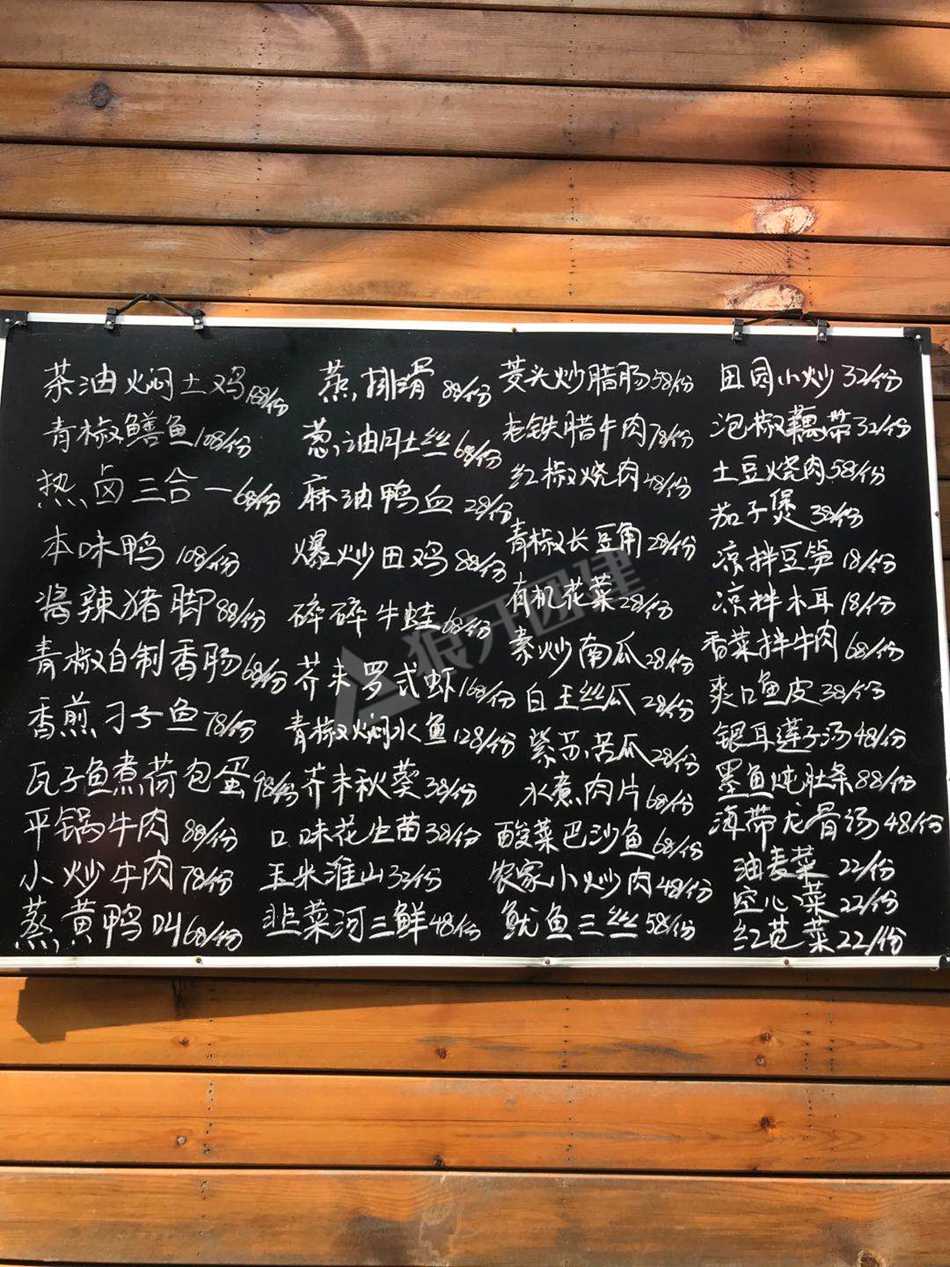 茶油焖土鸡168/份
青椒鳝鱼108/份
热卤三合一68/份
本味鸭 108/份
酱辣猪脚88/份
青椒自制香肠68/份
香煎刁子鱼78/份
瓦子鱼煮荷包蛋98/份
平锅牛肉 88/份
小炒牛肉78/份
蒸黄鸭叫68/份
蒸排骨 88/份
葱油土丝 68/份
麻油鸭血 28/份
爆炒田鸡 88/份
碎碎牛蛙68/份
芥末罗式虾168/份
青椒焖水鱼128/份
芥末秋葵38/份
口味花生苗38/份
玉米淮山32/份
韭菜河三鲜48/份
菱头炒腊肠58/份
老铁腊牛肉78/份
红椒烧肉48/份
青椒长豆角28/份
有机花菜28/份
素炒南瓜28/份
白玉丝瓜 28/份
紫苏苦瓜28/份
水煮肉片68/份
酸菜巴沙鱼68/份
农家小炒肉48/份
鱿鱼三丝58/份
田园小炒32/份
泡椒藕带32/份
土豆烧肉58/份
茄子煲 38/份
凉拌豆笋18/份
凉拌木耳18/份
香菜拌牛肉68/份
爽口鱼皮38/份
银耳莲子汤48/份
墨鱼炖肚条88/份
海带龙骨汤48/份
油麦菜 22/份
空心菜 22/份
红苋菜22/份
狼牙团建